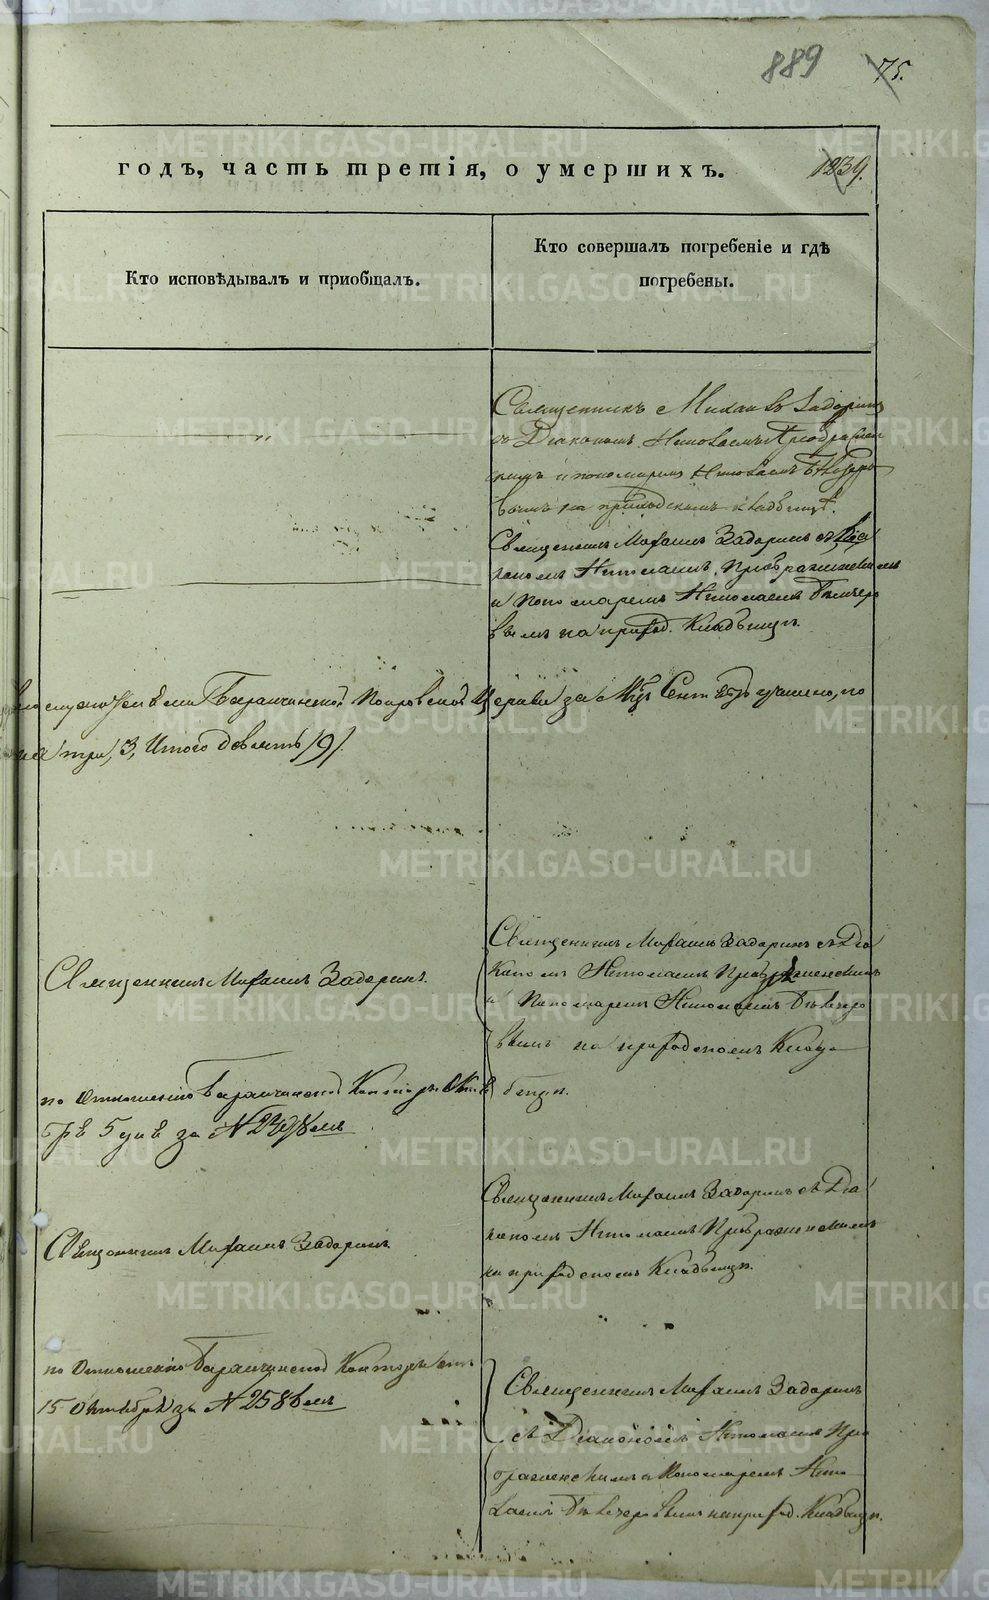 889
75.
годъ, часть третія, о умершихъ.
1239.
Кто исповѣдывалъ и приобщалъ.
Кто совершалъ погребеніе и гдѣ
погребены.
Священникъ Михаилъ Задоринъ
съ Діакономъ Николаемъ Преображен
скимъ и пономаремъ Николаемъ
на приходскомъ кладбищѣ.
Священникъ Михаилъ Задоринъ съ Діа
кономъ Николаемъ Преображенскимъ
и Пономаремъ Николаемъ
вымъ на приход. Кладбищѣ.
Баранчинской Покровской Церкви за Мцъ Сент учинено, по
три, 3, Итого девять /9/.
Священникъ Михаилъ Задоринъ.
Священникъ Михаилъ Задоринъ съ Діа
кономъ Николаемъ Преображенскимъ
и Пономаремъ Николаемъ
вымъ на приходскомъ Клад
бищѣ.
по отношенію Баранчинской Конторы Октя
бря 5 дня за №
Священникъ Михаилъ Задоринъ.
Священникъ Михаилъ Задоринъ съ Діа
кономъ Николаемъ Преображенскимъ
на приходскомъ Кладбищѣ.
по отношенію Баранчинской Конторы отъ
15 октября за № 258
Священникъ Михаилъ Задоринъ
съ Діакономъ Николаемъ Прео
браженскимъ и Пономаремъ Нико
лаемъ на приход. Кладбищѣ.
METRIKI.GASO-URAL.RU